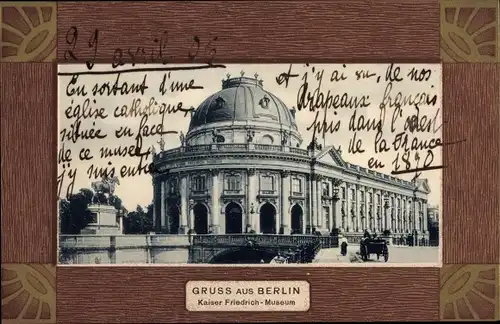 29 avril 06
En sortant d'une
église catholique
située en face
de ce musée
j'y suis entré
et j'y ai vu, de nos
drapeaux français
pris dans l'Est
de la France
en 1870
GRUSS AUS BERLIN
Kaiser Friedrich-Museum